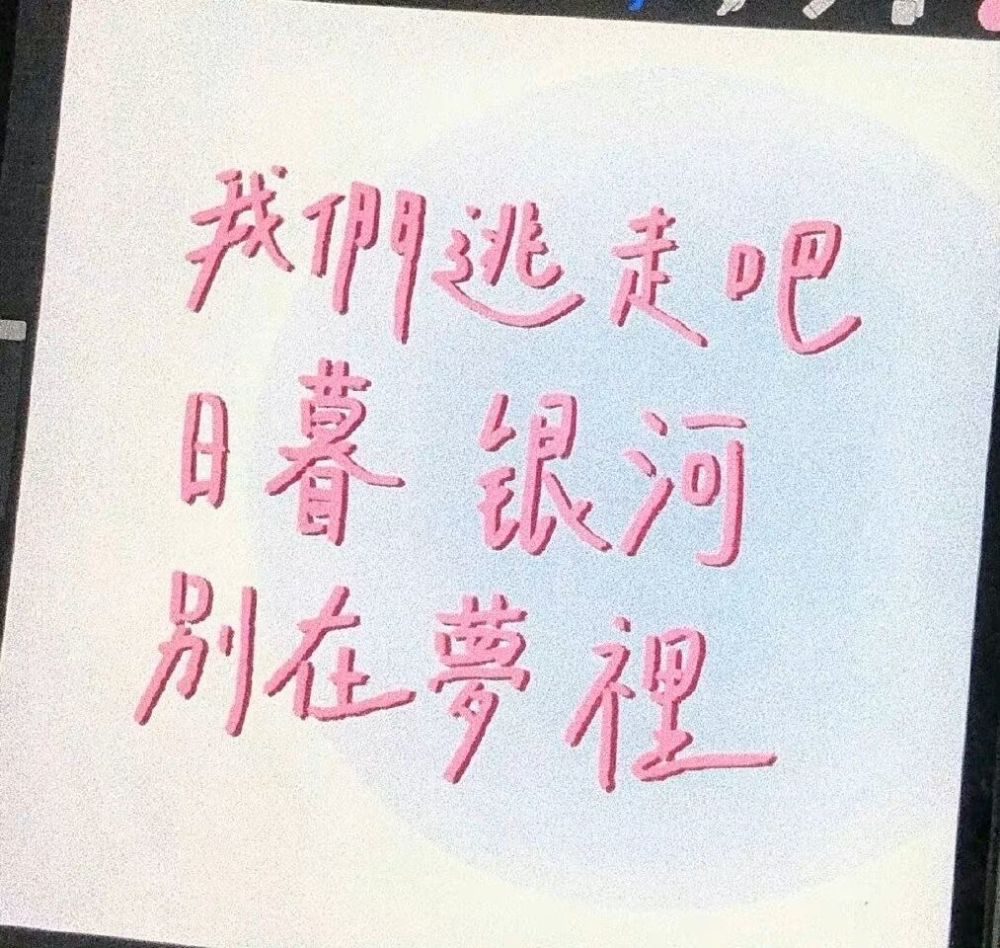 我們逃走吧
日暮 银河
別在夢裡